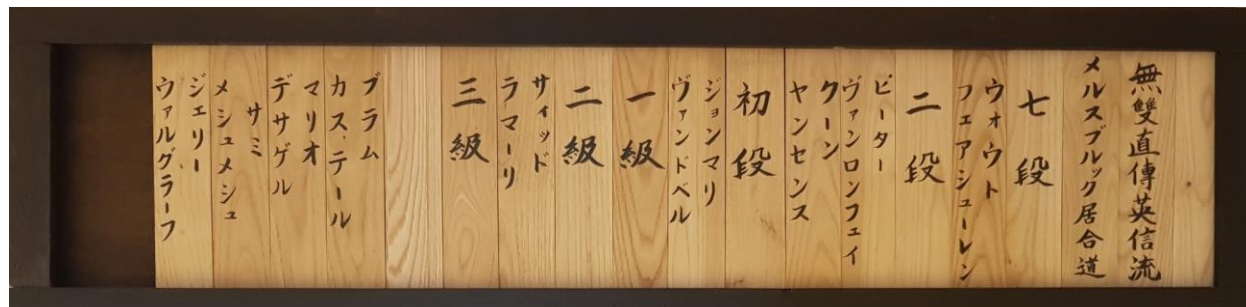 無雙直傳英信流
メルスブルック居合道
七段
ウォウト
フェアシューレン
二段
ピーター
ヴァンロンフェイ
クーン
ヤンセンス
初段
ジョンマリ
ヴァンドベル
一級
二級
サィッド
ラマーリ
三級
ブラム
カス・テール
マリオ
デサゲル
サミ
メシュメシュ
ジェリー
ヴァルグラーフ